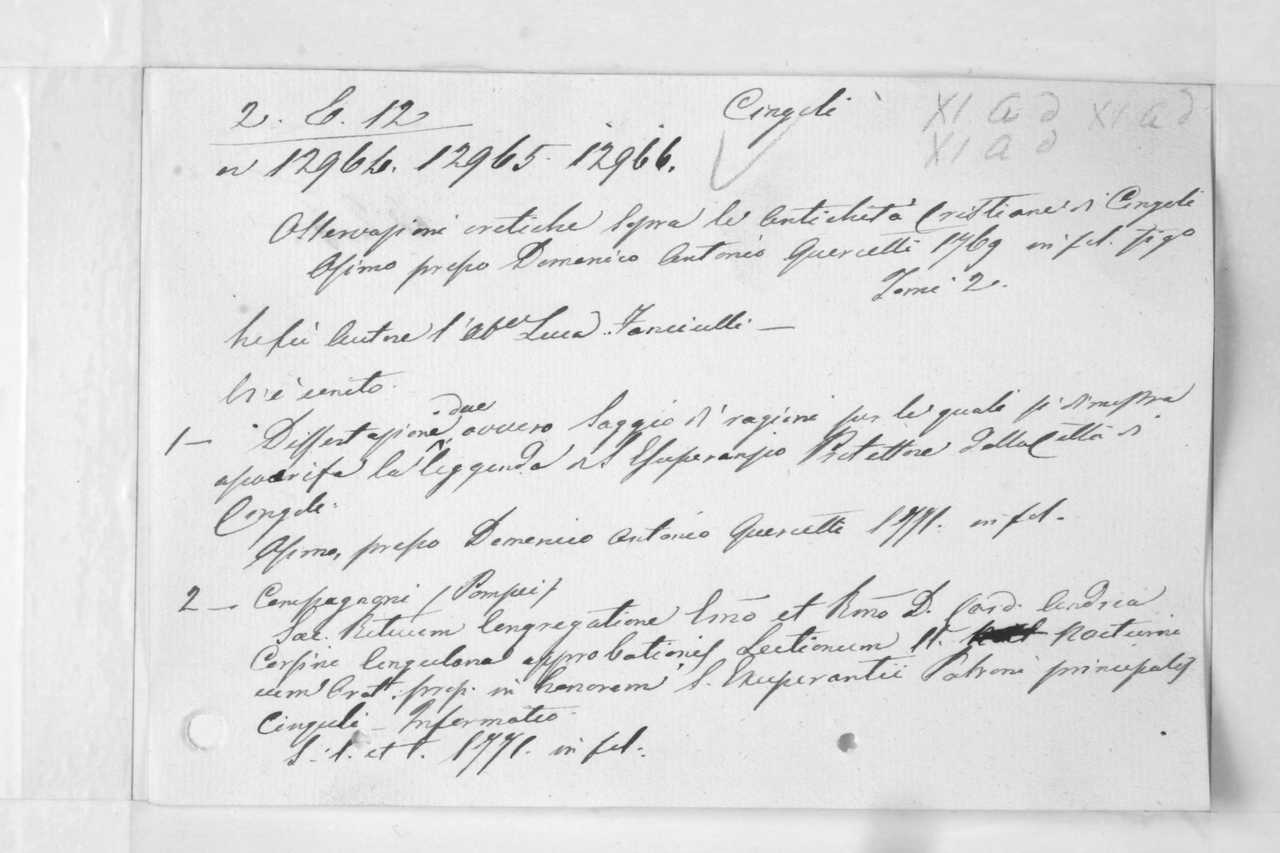 2. E. 12
Cingoli
XI a d XI a d
XI a d
n 12964. 12965. 12966.
Osservazioni critiche sopra le antichità Cristiane di Cingoli
Osimo presso Domenico Antonio Quercetti 1769 in fol. fig°
Tomi 2.
Ne fù autore l'Ab.e Luca Fanciulli —
Vi è unito.
1 — Dissertazione due ovvero Saggio di ragioni per le quali si dimostra
apocrifa la leggenda di S. Esuperanzio Protettore della Città di
Cingoli.
Osimo, presso Domenico Antonio Quercetti 1771. in fol.
2 — Compagnoni (Pompei)
Sac. Rituum Congregatione Emo et Rmo D. Card. Andrea
Corsino Cingulana approbationis Lectionum II. Nocturni
cum Orat. prop. in honorem S. Exuperantii Patroni principalis
Cinguli — Informatio.
S. l. et t. 1771. in fol.